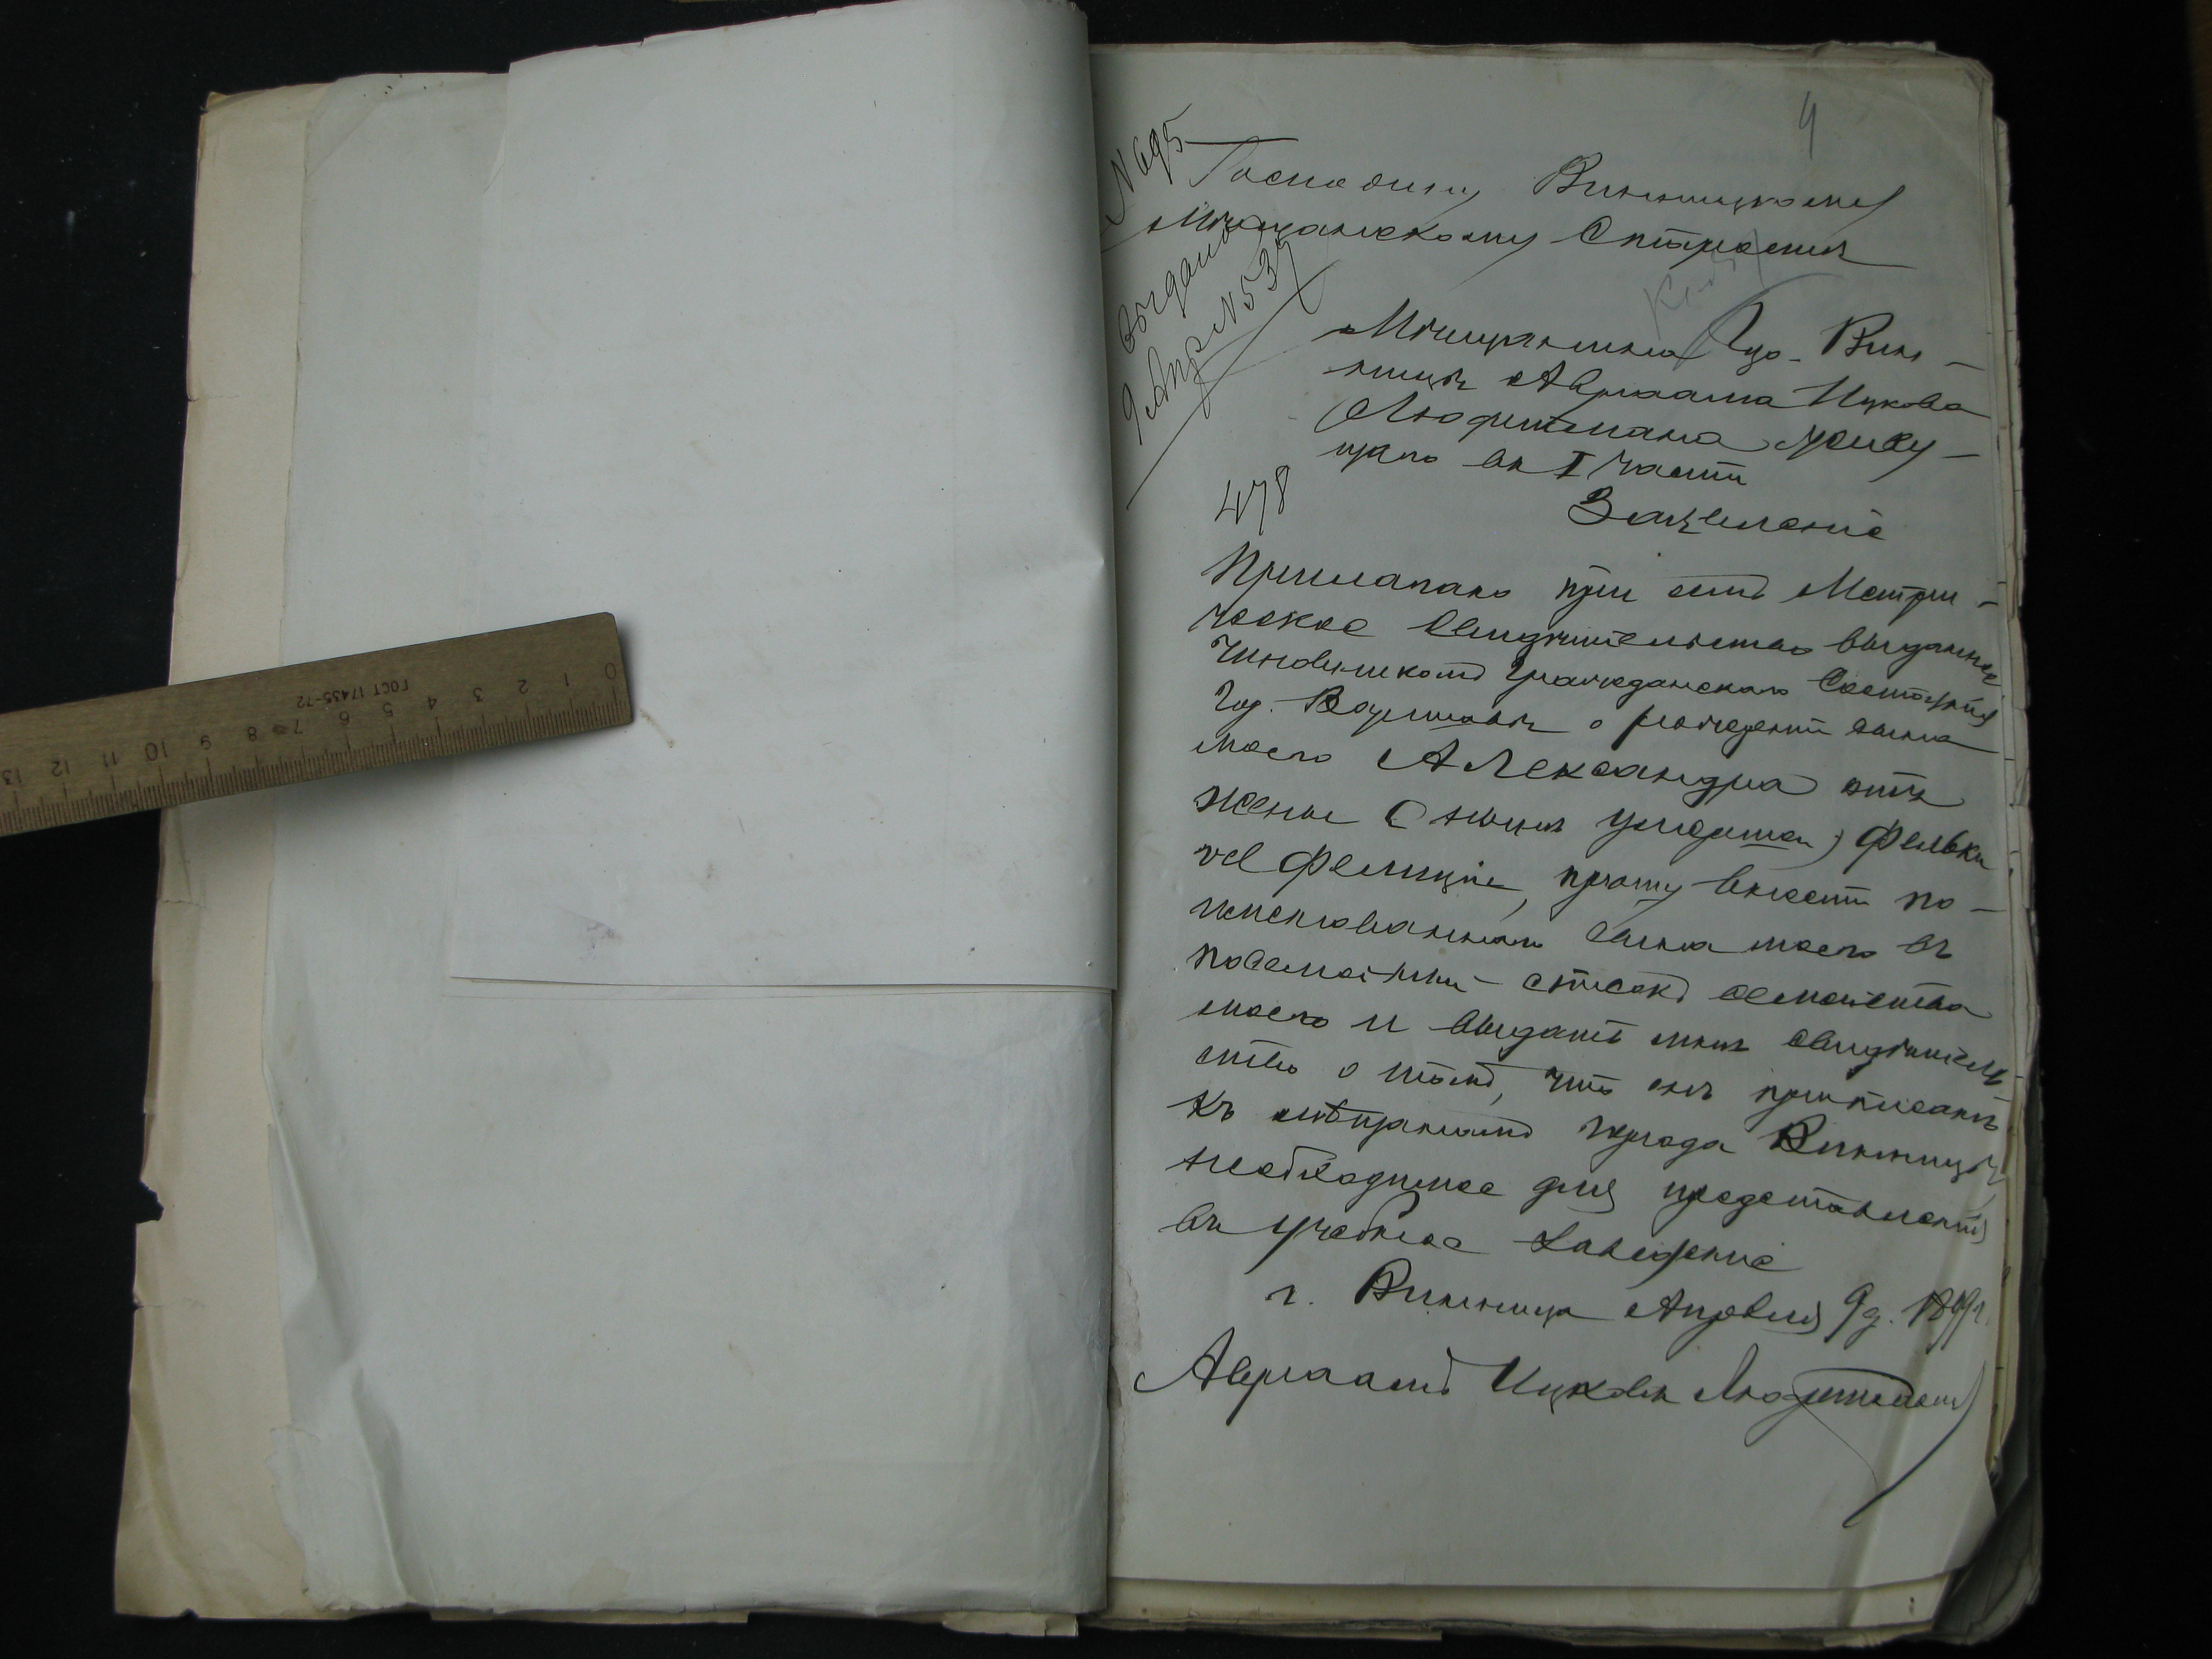 4
N 695
Господину Винницкому
Мѣщанскому Старостѣ
Выдано
9 Апр N 537
Мѣщанина гор. Вин-
ницы Авраама Ицкова
живу-
щаго въ I части
478
Заявленіе
Прилагаю при семъ Метри-
ческое свидѣтельство выданное
Чиновникомъ Гражданскаго Состоянія
гор. о рожденіи сына
моего Александра отъ
жены (нынѣ умершей) Фельки
vel Фелиціи, прошу внести по-
именованнаго сына моего въ
посемейный списокъ семейства
моего и выдать мнѣ свидѣтель
ство о томъ, что онъ приписанъ
къ мѣщанамъ города Винницы,
необходимое для представленія
въ учебное заведеніе
г. Винница Апрѣля 9 д.
Авраамъ Ицковъ
ГОСТ 17435-72
0 1 2 3 4 5 6 7 8 9 10 11 12 13